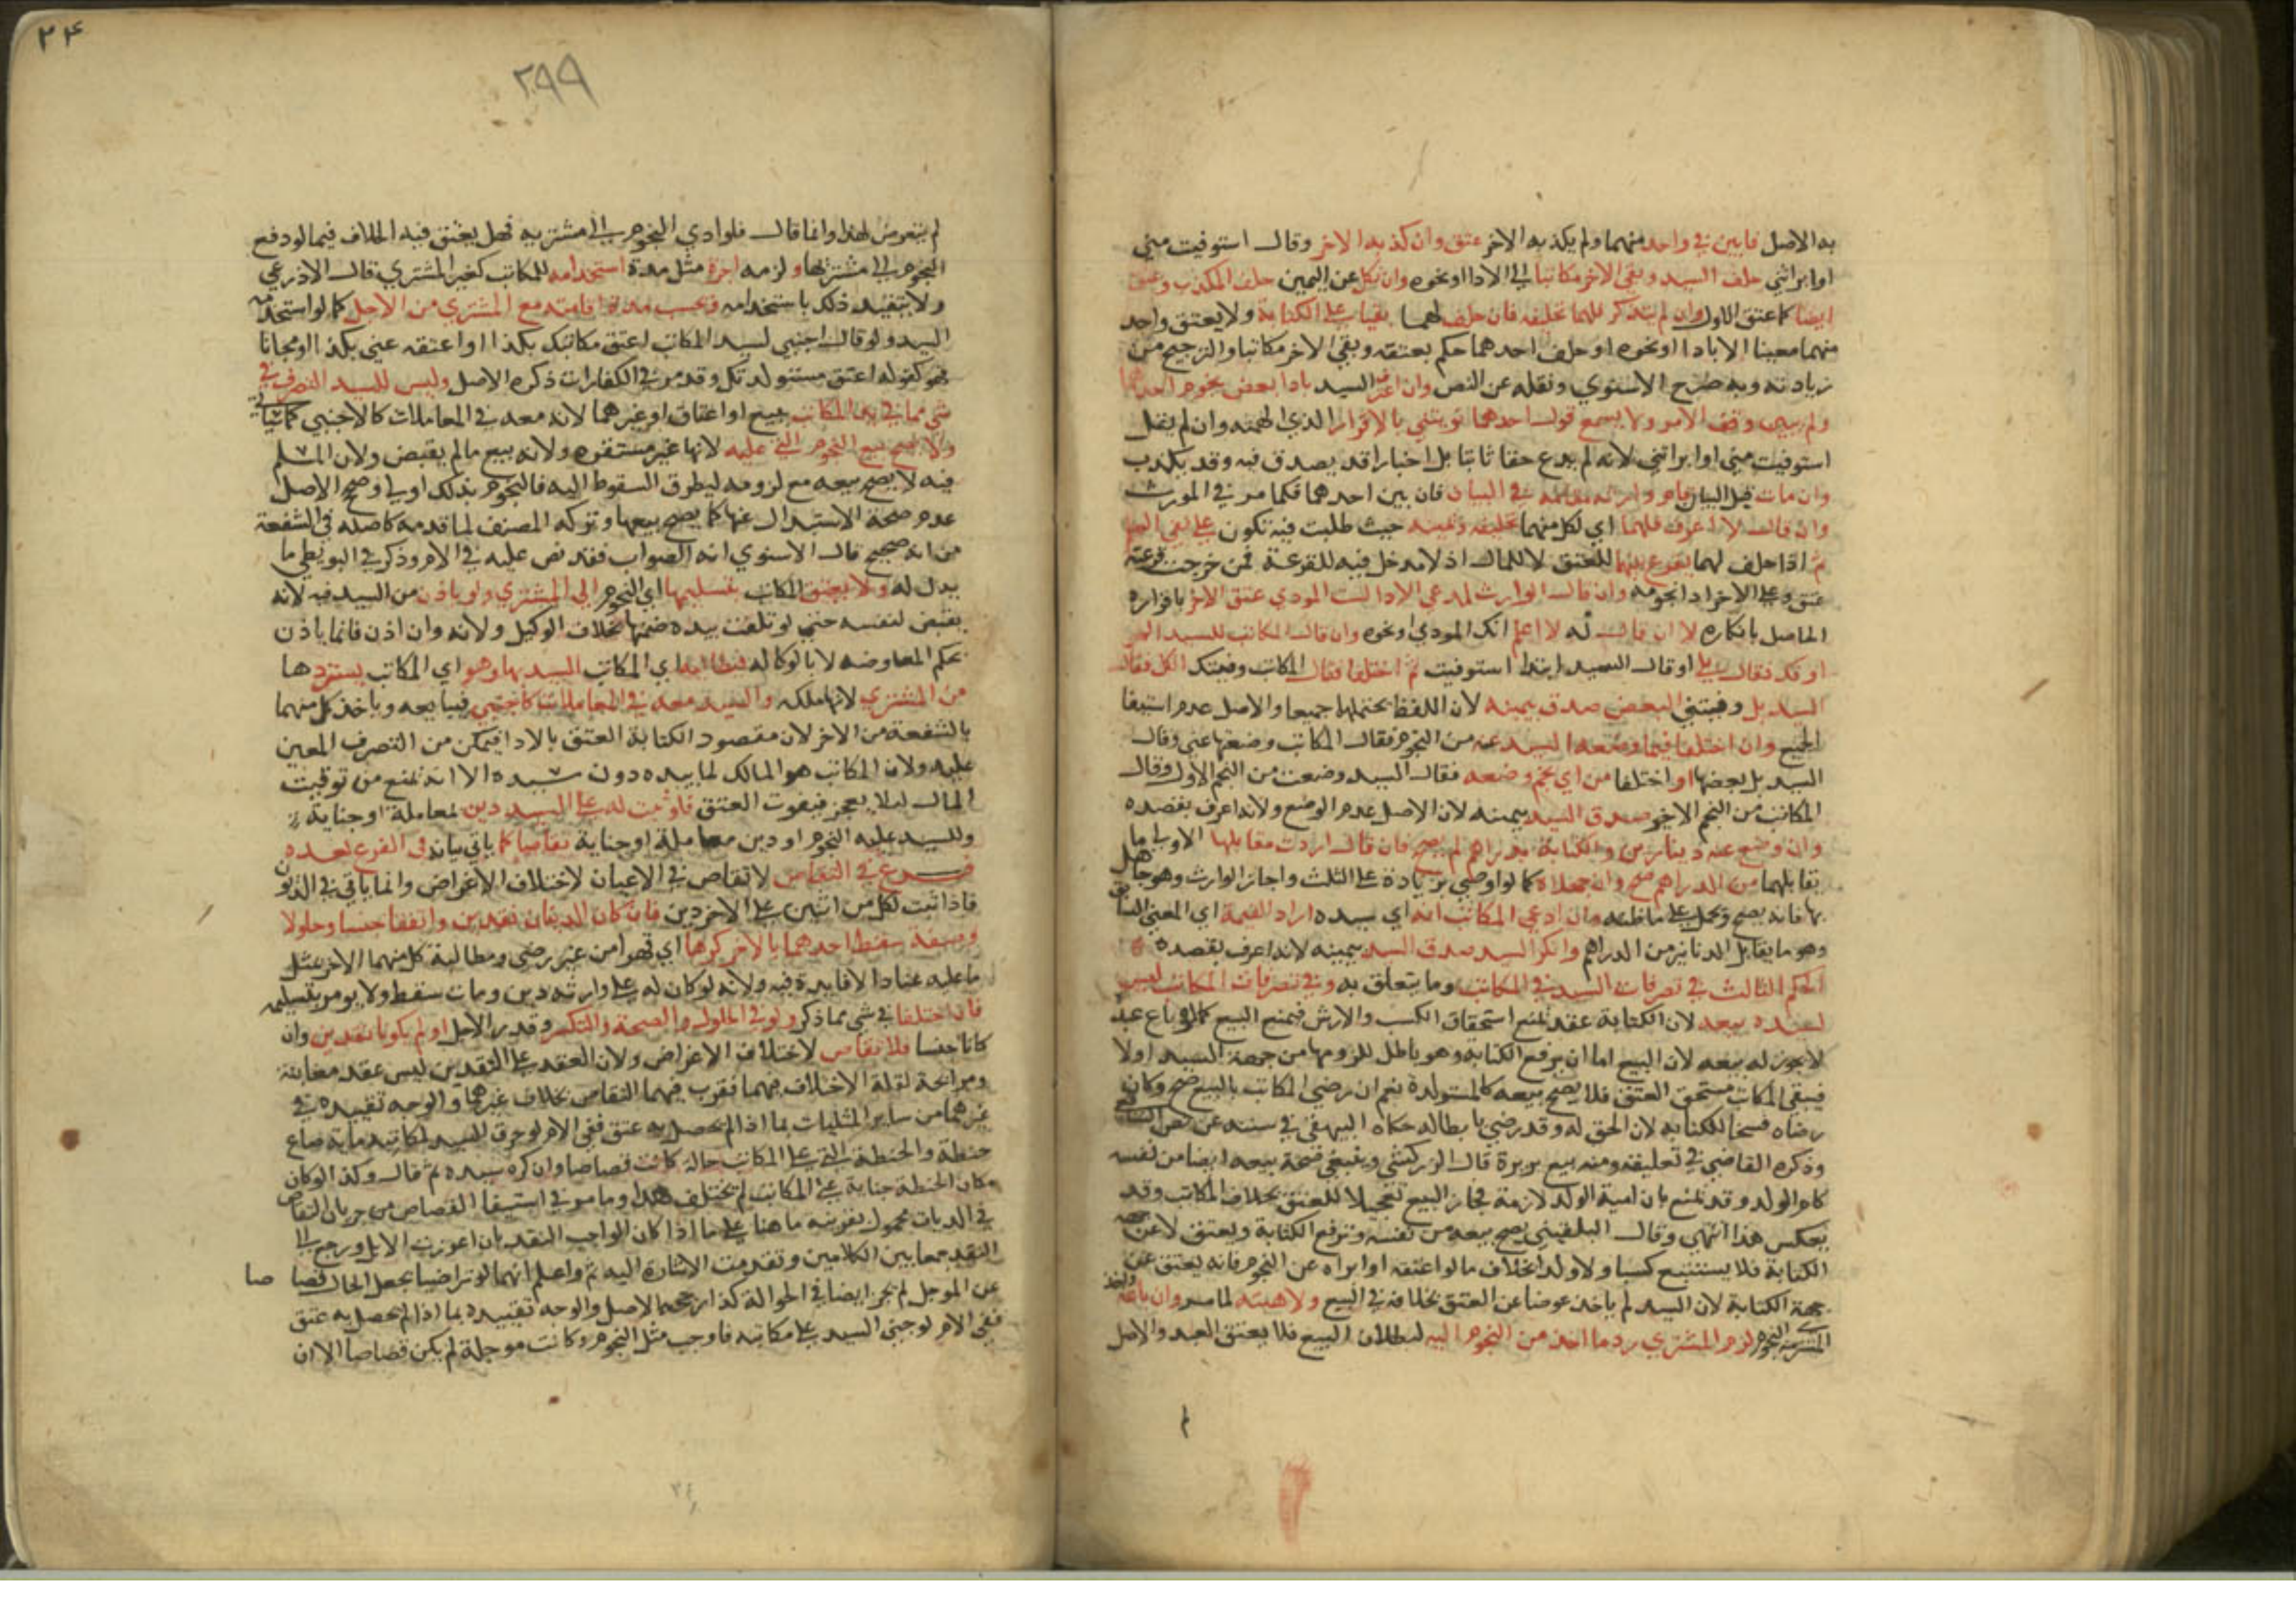 به الاصل فابين في واحد منهما ولم يكذبه الاخر عتق وان كذبه الاخر وقال استوفيت مني
او ابراتني حلف السيد وبقي الاخر مكاتبا الي الادا او نحوه وان نكل عن اليمين حلف المكذب وعتق
ايضا كما عتق الاول وان لم يتذكر فلهما تحليفه فان حلف لهما بقيا علي الكتابة ولا يعتق واحد
منهما معينا الا بادا او نحوه او حلف احدهما حكم بعتقه وبقي الاخر مكاتبا والترجيح من
زيادته وبه صرح الاسنوي ونقله عن النص وان اعترف السيد بادا بعض نجوم احدهما
ولم يبين وقف الامر ولا يسمع قول احدهما نويتني بالاقرار الذي ابهمته وان لم يقل
استوفيت مني او ابراتني لانه لم يدع حقا ثابتا بل اخبارا قد يصدق فيه وقد يكذب
وان مات قبل البيان قام وارثه مقامه في البيان فان بين احدهما فكما مر في المورث
وان قال لا اعرف فلهما اي لكل منهما تحليفه ويمينه حيث طلبت فيه تكون علي نفي العلم
ثم اذا حلف لهما يقرع بينهما للعتق لا للمال اذ لا مدخل فيه للقرعة فمن خرجت قرعته
عتق وعلي الاخر ادا نجومه وان قال الوارث لمدعي الادا لست المودي عتق الاخر باقراره
الحاصل بانكاره لا ان قال له لا اعلم انك المودي او نحوه وان قال المكاتب للسيد
اوفك فقال بلي او قال السيد ابتدا استوفيت ثم اختلفا فقال المكاتب وفيتك الكل فقال
السيد بل وفيتني البعض صدق بيمينه لان اللفظ يحتملهما جميعا والاصل عدم استيفا
الجميع وان اختلفا فيما وضعه السيد عنه من النجوم فقال المكاتب وضعتها عني وقال
السيد بل بعضها او اختلفا من اي نجم وضعه فقال السيد وضعت من النجم الاول وقال
المكاتب من النجم الاخير صدق السيد بيمينه لان الاصل عدم الوضع ولانه اعرف بقصده
وان وضع عنه دينارين والكتابة بدراهم لم يصح فان قال اردت مقابلها الاولي ما
يقابلهما من الدراهم صح وان جهلاه كما لو اوصي بزيادة علي الثلث واجاز الوارث وهو جاهل
بها فانه يصح ويحمل علي ما ظنه وان ادعي المكاتب انه اي سيده اراد القيمة اي المعني السابق
وهو ما يقابل الدنانير من الدراهم وانكر السيد صدق السيد بيمينه لانه اعرف بقصده
الحكم الثالث في تصرفات السيد في المكاتب وما يتعلق به وفي تصرفات المكاتب ليس
لسيده بيعه لان الكتابة عقد تمنع استحقاق الكسب والارش فيمنع البيع كما لو باع عبدا
لا يجوز له بيعه لان البيع اما ان يرفع الكتابة وهو باطل للزومها من جهة السيد اولا
فيبقي المكاتب مستحق العتق فلا يصح بيعه كالمستولدة نعم ان رضي المكاتب بالبيع صح وكان
رضاه فسخا للكتابة لان الحق له وقد رضي بابطاله حكاه البيهقي في سننه عن نص الشافعي
وذكره القاضي في تعليقه ومنه بيع بريرة قال الزركشي وينبغي صحة بيعه ايضا من نفسه
كام الولد وقد تمنع بان امية الولد لازمة فجاز البيع تعجيلا للعتق بخلاف المكاتب وقد
يعكس هذا انتهي وقال البلقيني يصح بيعه من نفسه وترفع الكتابة ويعتق لا عن جهة
الكتابة فلا يستتبع كسبا ولا ولدا بخلاف ما لو اعتقه او ابراه عن النجوم فانه يعتق عن
جهة الكتابة لان السيد لم ياخذ عوضا عن العتق بخلافه في البيع ولا هبته لما مر وان باعه واخذ
المشتري النجوم لزم المشتري رد ما اخذ من النجوم اليه لبطلان البيع فلا يعتق العبد والاصل
٣٤
٢٩٩
لم يتعرض لهذا وانما قال فلو ادي النجوم الي مشتريه فهل يعتق فيه الخلاف فيما لو دفع
النجوم الي مشتريها ولزمه اجرة مثل مدة استخدامه للمكاتب كغير المشتري قال الاذرعي
ولا يتقيد ذلك باستخدامه وتحسب مدة اقامته مع المشتري من الاجل كما لو استخدمه
السيد ولو قال اجنبي لسيد المكاتب اعتق مكاتبك بكذا او اعتقه عني بكذا او مجانا
فهو كقوله اعتق مستولدتك وقد مر في الكفارات ذكره الاصل وليس للسيد التصرف في
شي مما في يد المكاتب ببيع او اعتاق او غيرهما لانه معه في المعاملات كالاجنبي كما سياتي
ولا يصح بيع النجوم التي عليه لانها غير مستقره ولانه بيع ما لم يقبض ولان المسلم
فيه لا يصح بيعه مع لزومه ليطرق السقوط اليه فالنجوم بذلك اولي وصحح الاصل
عدم صحة الاستبدال عنها كما يصح بيعها وتركه المصنف لما قدمه كاصله في الشفعة
من انه صحيح قال الاسنوي انه الصواب فقد نص عليه في الام وذكر في البويطي ما
يدل له ولا يعتق المكاتب بتسليمها اي النجوم الي المشتري ولو باذن من السيد فيه لانه
يقبض لنفسه حتي لو تلفت بيده ضمنها بخلاف الوكيل ولانه وان اذن فانما ياذن
بحكم المعاوضة لا بالوكالة فيطالبه اي المكاتب السيد بها وهو اي المكاتب يستردها
من المشتري لانها ملكه والسيد معه في المعاملات كاجنبي فيبايعه وياخذ كل منهما
بالشفعة من الاخر لان مقصود الكتابة العتق بالادا فيمكن من التصرف المعين
عليه ولان المكاتب هو المالك لما بيده دون سيده الا انه يمنع من تفويت
المال ليلا يعجز فيفوت العتق فلو ثبت له علي السيد دين لمعاملة او جناية
وللسيد عليه النجوم او دين معاملة او جناية تقاصا كما ياتي بيانه في الفرع بعده
فرع في التقاص لا تقاص في الاعيان لاختلاف الاغراض وانما ياتي في الديون
فاذا ثبت لكل من اثنين علي الاخر دين فان كان الدينان نقدين واتفقا جنسا وحلولا
وصفة سقط احدهما بالاخر كرها اي قهرا من غير رضي ومطالبة كل منهما الاخر بمثل
ما عليه عنادا لا فايدة فيه ولانه لو كان له علي وارثه دين ومات سقط ولا يومر بتسليمه
فان اختلفا في شي مما ذكر ولو في الحلول والصحة والتكسر وقدر الاجل او لم يكونا نقدين وان
كانا جنسا فلا تقاص لاختلاف الاغراض ولان العقد علي النقدين ليس عقد مغابنة
ومرابحة لقلة الاختلاف فيهما فقرب فيهما التقاص بخلاف غيرهما والوجه تقييده في
غيرهما من ساير المثليات بما اذا لم يحصل به عتق ففي الام لو حرق السيد لمكاتبه ماية صاع
حنطة والحنطة التي علي المكاتب حالة كانت قصاصا وان كره سيده ثم قال وكذا لو كان
مكان الحنطة جناية علي المكاتب لم يختلف هذا وما مر في استيفا القصاص من جريان التقاص
في الديات محمول بقرينه ما هنا علي ما اذا كان الواجب النقد بان اعوزت الابل ورجع الي
النقد جمعا بين الكلامين وتقدمت الاشارة اليه ثم واعلم انهما لو تراضيا بجعل الحال قصاصا
عن الموجل لم يجز ايضا في الحوالة كذا رجحه الاصل والوجه تقييده بما اذا لم يحصل به عتق
ففي الام لو جني السيد علي مكاتبه فاوجب مثل النجوم وكانت موجلة لم يكن قصاصا الا ان